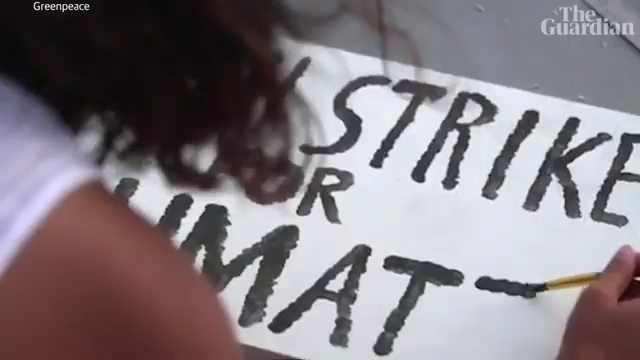 Greenpeace
The
Guardian
STRIKE
OR
IMAT